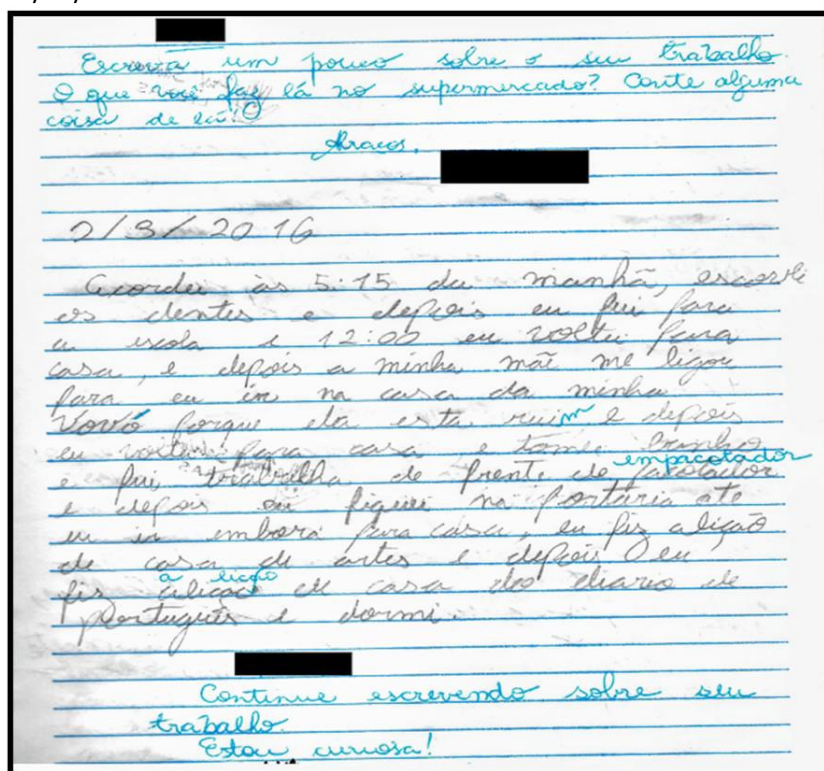 Escreva um pouco sobre o seu trabalho.
O que você faz lá no supermercado? Conte alguma
coisa de lá!
Abraços,
2/3/2016
Acordei às 5:15 da manhã, escovei
os dentes e depois eu fui para
a escola e 12:00 eu voltei para
casa, e depois a minha mãe me ligou
para eu ir na casa da minha
Vovó porque ela esta ruim e depois
eu voltei para casa e tomei banho
empacotador
e fui trabalha de frente de pacotador
e depois eu fiquei na portaria ate
eu ir embora para casa, eu fiz alição
de casa de artes e depois eu
a lição
fiz alição de casa do diario de
português e dormi.
Continue escrevendo sobre seu
trabalho.
Estou curiosa!